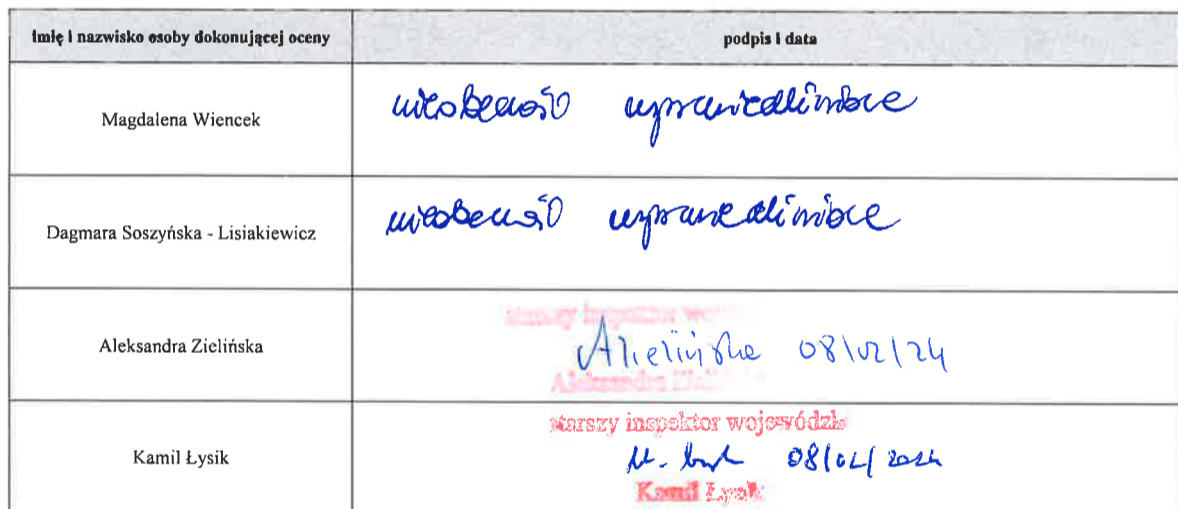 imię i nazwisko osoby dokonującej oceny podpis i data
Magdalena Wiencek nieobecność usprawiedliwiona
Dagmara Soszyńska - Lisiakiewicz nieobecność usprawiedliwiona
starszy inspektor
Aleksandra Zielińska AZielińska 08/02/24
Aleksandra
starszy inspektor wojewódzki
Kamil Łysik 08/02/2024
Kamil Łysik